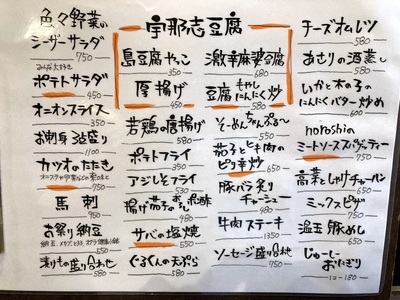 色々野菜の
シーザーサラダ
750
みんな大好き
ポテトサラダ
450
オニオンスライス
350
お刺身3点盛り
1100
カツオのたたき
750
馬刺
950
お祭り納豆
550
漬けもの盛り合わせ
580
宇那志豆腐
島豆腐やっこ
350
激辛麻婆豆腐
680
厚揚げ
450
豆腐もやし
にんにく炒
580
若鶏の唐揚げ
580
ポテトフライ
350
アジしそフライ
530
サバの塩焼
550
ぐるくんの天ぷら
580
そーめんちゃんぷる〜
550
茄子とヒキ肉の
ピリ辛炒
660
豚バラ炙り
チャーシュー
480
牛肉ステーキ
1300
ソーセージ盛り合わせ
750
チーズオムレツ
580
あさりの酒蒸し
580
いかと木の子の
にんにくバター炒め
600
noroshiの
ミートソーススパゲッティー
780
高菜としゃけチャーハン
650
ミックスピザ
750
温玉豚めし
650
じゅーしー
おむすび
1コ-180